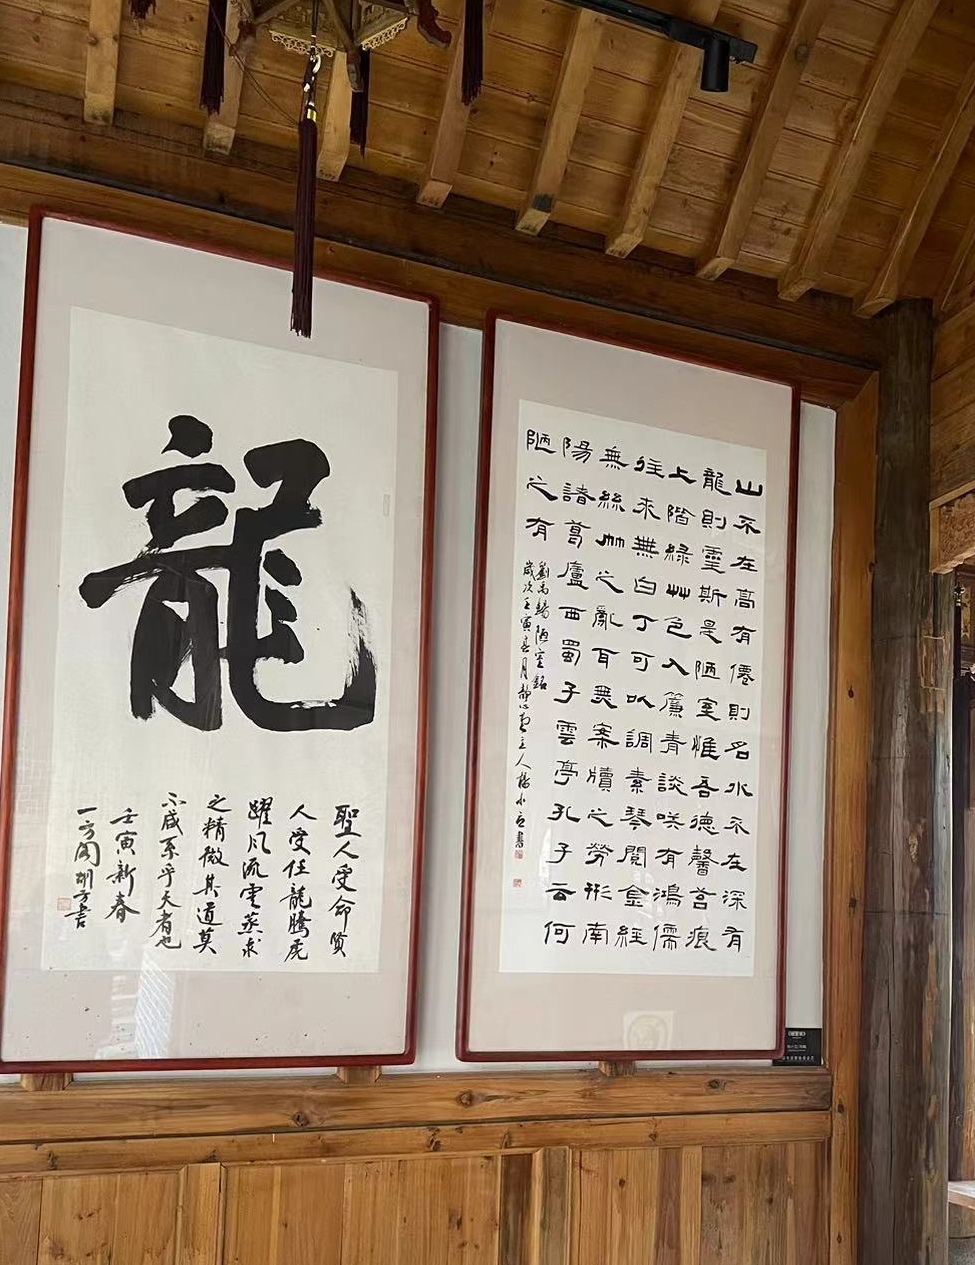 山不在高有僊則名水不在深有
龍則靈斯是陋室惟吾德馨苔痕
上階綠艸色入簾青談咲有鴻儒
往來無白丁可以調素琴閱金經
無絲竹之亂耳無案牘之勞形南
陽諸葛廬西蜀子雲亭孔子云何
陋之有
劉禹錫陋室銘
歲次壬寅春月靜心齋主人楊小書
龍
聖人受命賢
人受任龍騰虎
躍風流雲蒸求
之精微其道莫
不咸系乎天者也
壬寅新春
一方閣胡方書